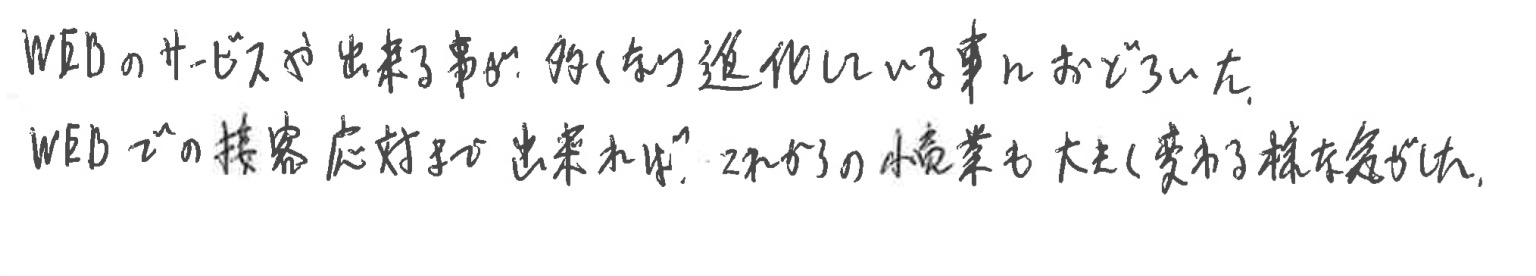 WEBのサービスや出来る事が、多くなり進化している事におどろいた。
WEBでの接客応対まで出来れば、これからの小売業も大きく変わる様な気がした。